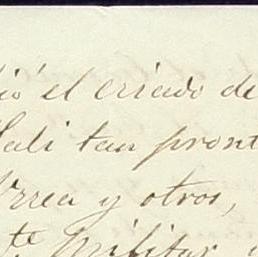 ió el criado de
Sali tan pront
Urrea y otros,
te militar